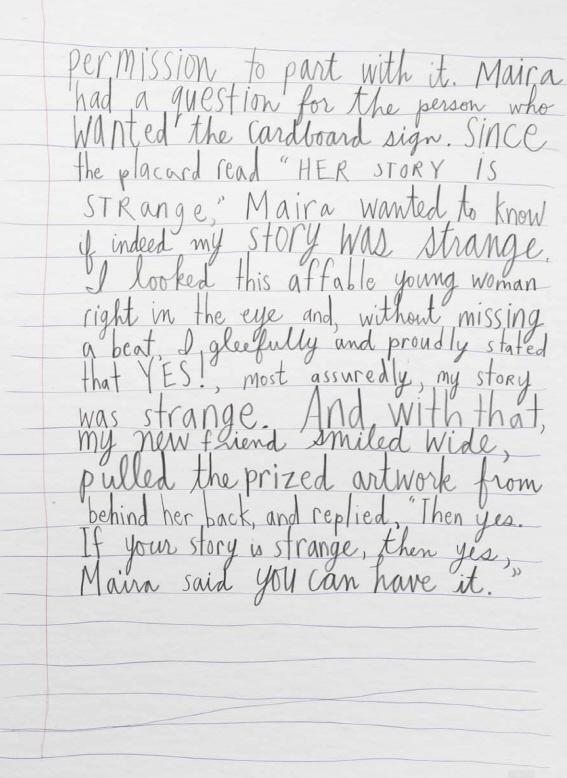 permission to part with it. Maira
had a question for the person who
wanted the cardboard sign. Since
the placard read "HER STORY IS
STRange," Maira wanted to know
if indeed my story was strange.
I looked this affable young woman
right in the eye and, without missing
a beat, I gleefully and proudly stated
that YES!, most assuredly, my story
was strange. And, with that,
my new friend smiled wide,
pulled the prized artwork from
behind her back, and replied, "Then yes.
If your story is strange, then yes,
Maira said you can have it."